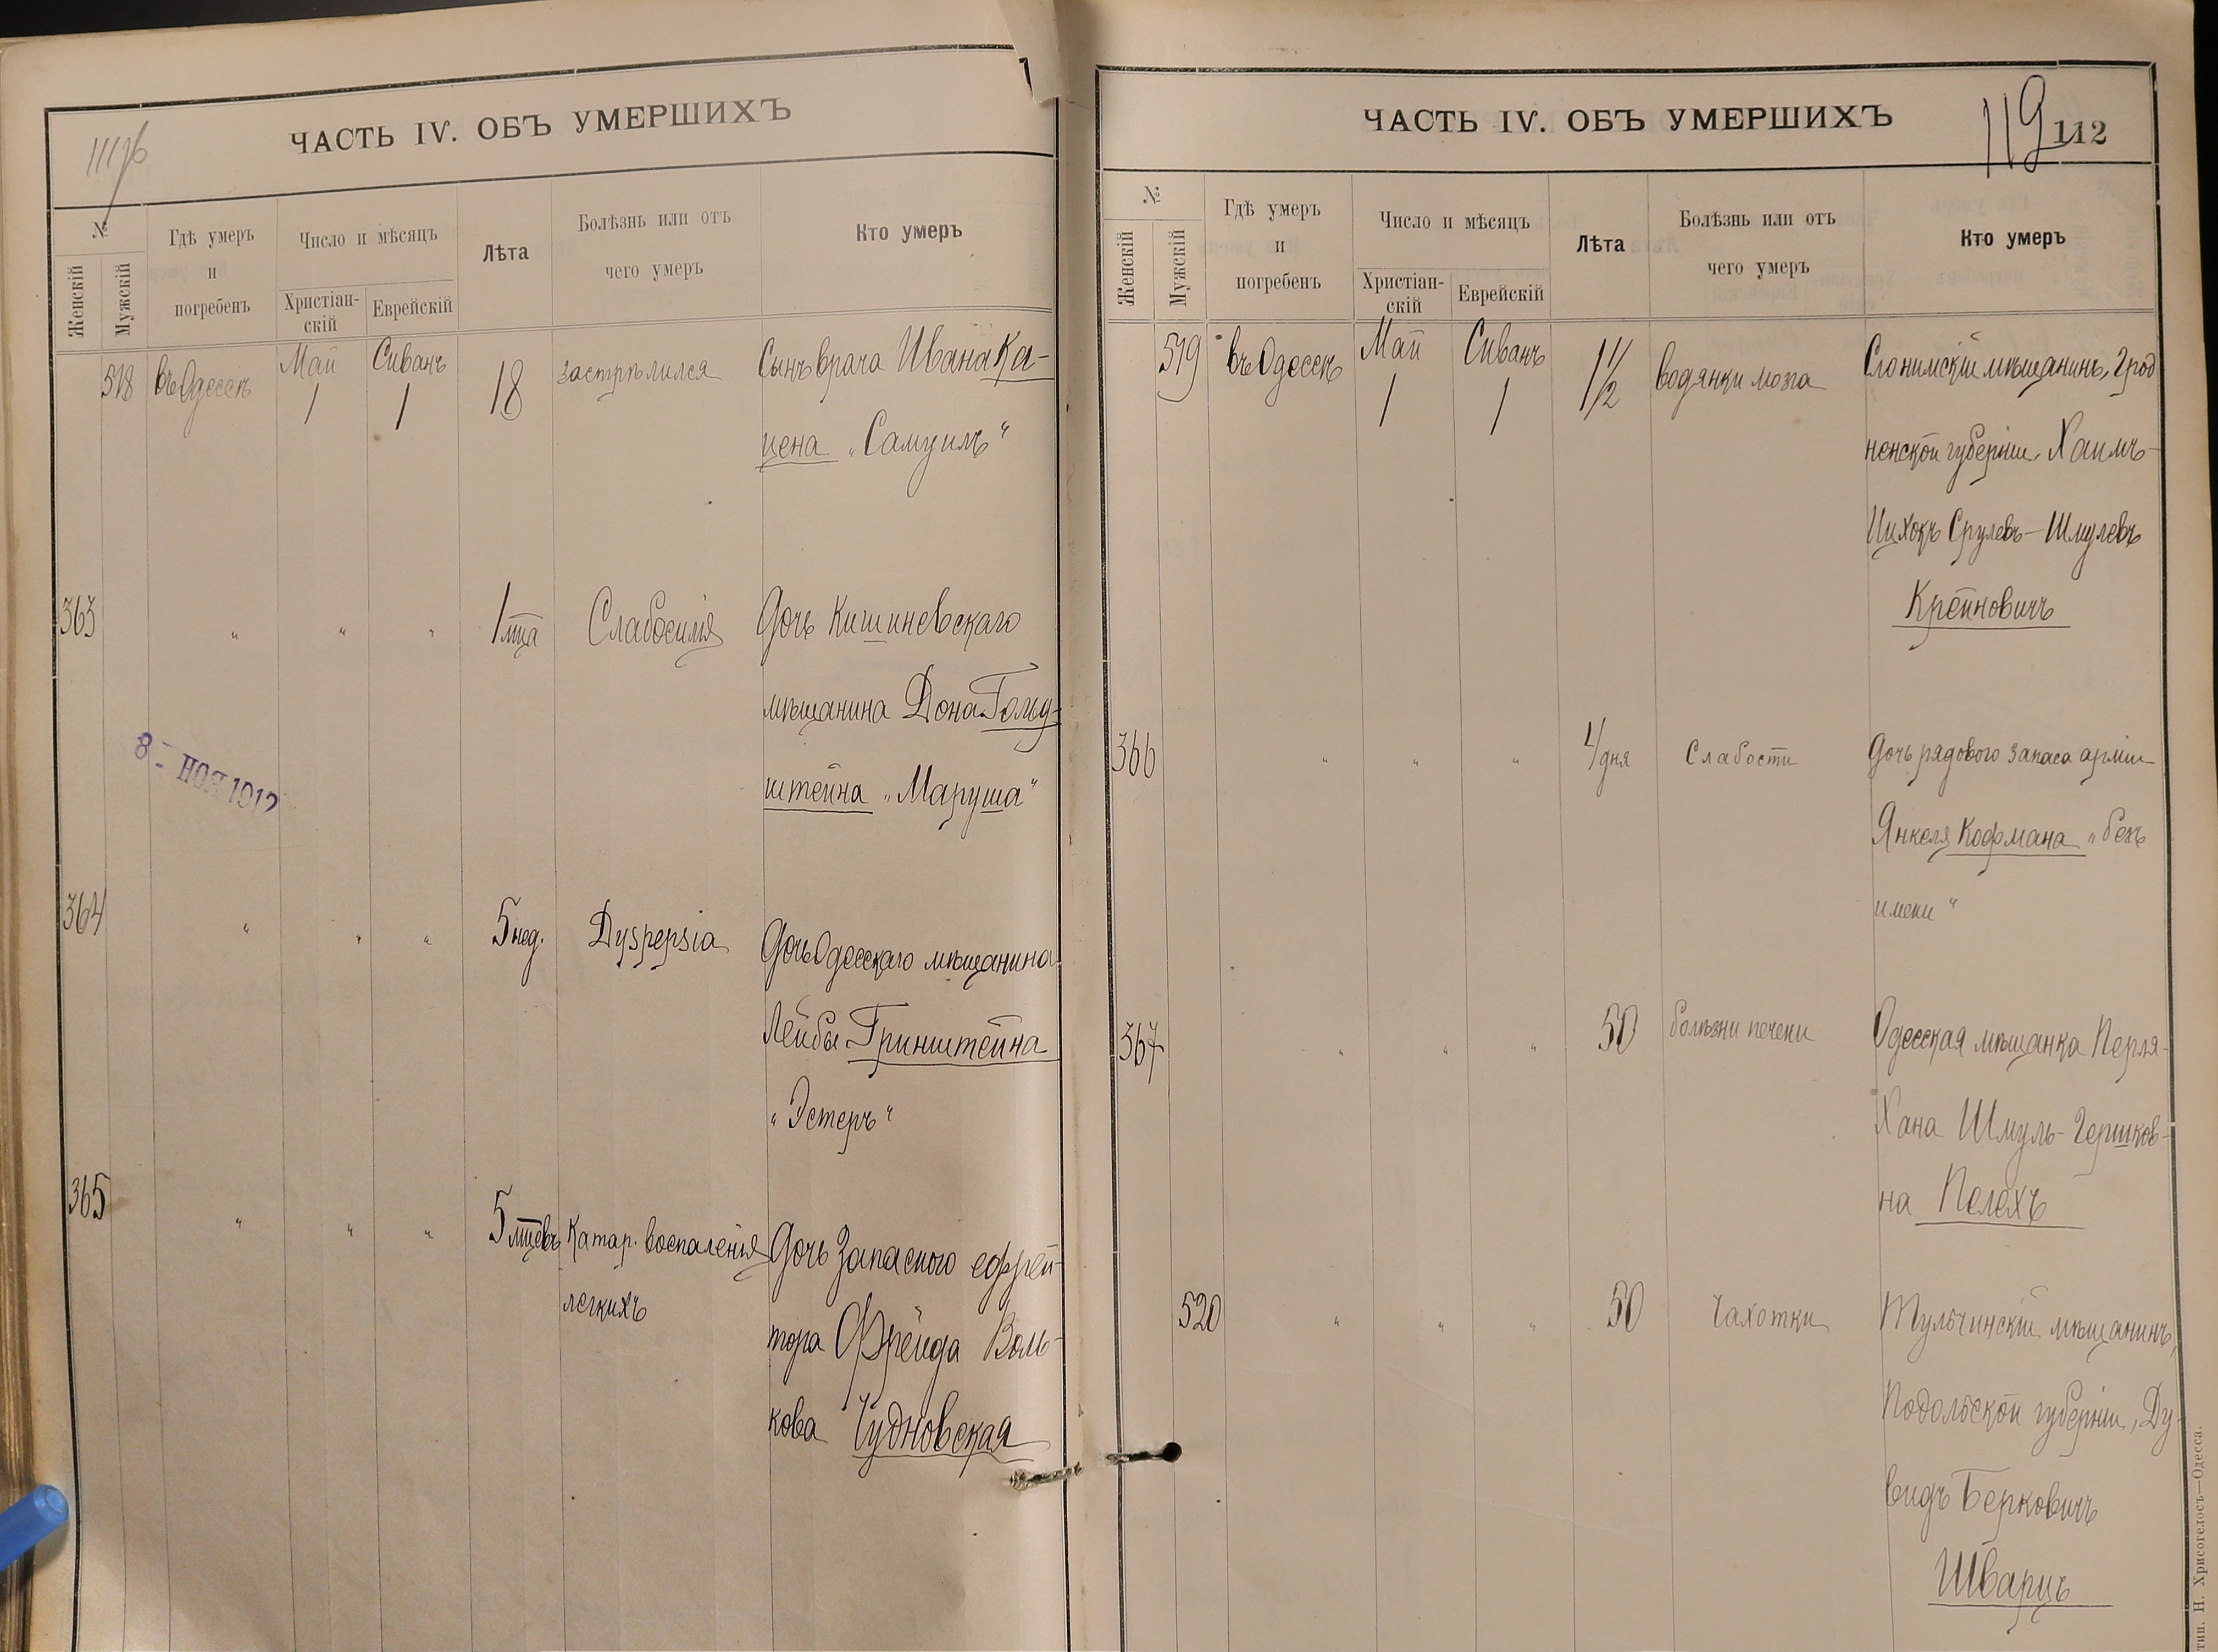 111/76
ЧАСТЬ IV. ОБЪ УМЕРШИХЪ
№
Женскій
Мужскій
Гдѣ умеръ
и
погребенъ
Число и мѣсяцъ
Христіан-
скій
Еврейскій
Лѣта
Болѣзнь или отъ
чего умеръ
Кто умеръ
518 въ Одессѣ Май Сиванъ 18 застрѣлился Сынъ врача Ивана Ка-
1 1
цена „Самуилъ“
363 „ „ „ 1 мца Слабосилія Дочь Кишиневскаго
мѣщанина Дона Гольд-
штейна „Маруша“
8 - НОЯ 1912
364 „ „ „ 5 нед. Dyspepsia Дочь Одесскаго мѣщанина
Лейбы Гринштейна
„Эстеръ“
365 „ „ „ 5 мцевъ Катар. воспаленія Дочь Запасного ефрей-
легкихъ
тора Фрейда Воль-
кова Чудновская
ЧАСТЬ IV. ОБЪ УМЕРШИХЪ
119
112
№
Женскій
Мужскій
Гдѣ умеръ
и
погребенъ
Число и мѣсяцъ
Христіан-
скій
Еврейскій
Лѣта
Болѣзнь или отъ
чего умеръ
Кто умеръ
519 въ Одессѣ Май Сиванъ 1 1/2 водянки мозга Слонимскій мѣщанинъ, Грод
1 1
ненской губерніи, Хаимъ-
Ицхокъ Срулевъ-Шмулевъ
Крейновичъ
366 „ „ „ 4 дня Слабости Дочь рядового запаса арміи
Янкеля Кофмана „безъ
имени“
367 „ „ „ 50 болѣзни печени Одесская мѣщанка Перля-
Хана Шмуль-Гершков-
на Пелехъ
520 „ „ „ 50 Чахотки Тульчинскій мѣщанинъ,
Подольской губерніи, Ду-
видъ Берковичъ
Шварцъ
тип. Н. Хрисогелосъ—Одесса.